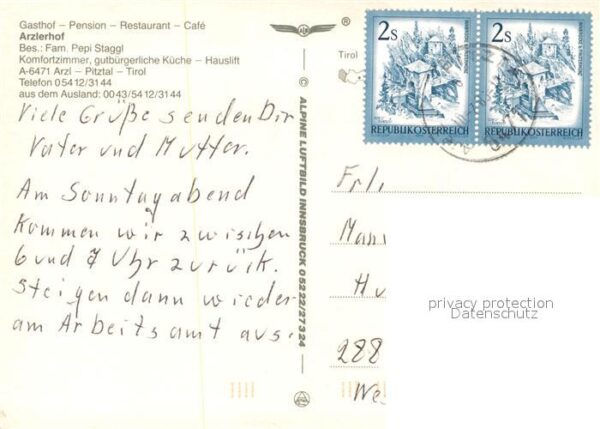 Gasthof – Pension – Restaurant – Café
Arzlerhof
Bes.: Fam. Pepi Staggl
Komfortzimmer, gutbürgerliche Küche – Hauslift
A-6471 Arzl – Pitztal – Tirol
Telefon 05412/3144
aus dem Ausland: 0043/5412/3144
Viele Grüße senden Dir
Vater und Mutter.
Am Sonntagabend
kommen wir zwischen
6 und 7 Uhr zurück.
Steigen dann wieder
am Arbeitsamt aus.
® ALPINE LUFTBILD INNSBRUCK 05222/27324
®
Tirol
2s
REPUBLIK ÖSTERREICH
2s
REPUBLIK ÖSTERREICH
Frl.
Man
Hu
288
We
privacy protection
Datenschutz